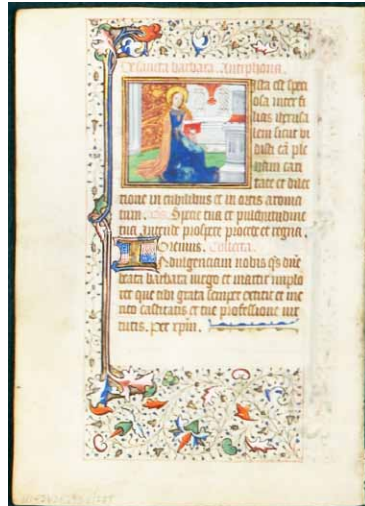 De sancta barbara. Antiphona.
Ista est speci
osa inter fi
lias iherusa
lem sicut vi
distis eā ple
nam cari
tate et dilec
tione in cubilibus et in ortis aroma
tum. Specie tua et pulchritudine
tua intende prospere procede et regna.
Oremus. Collecta.
Indulgenciam nobis qs dñe
beata barbara virgo et martir implo
ret que tibi grata semper extitit et me
rito castitatis et tue professione vir
tutis. per xpm.